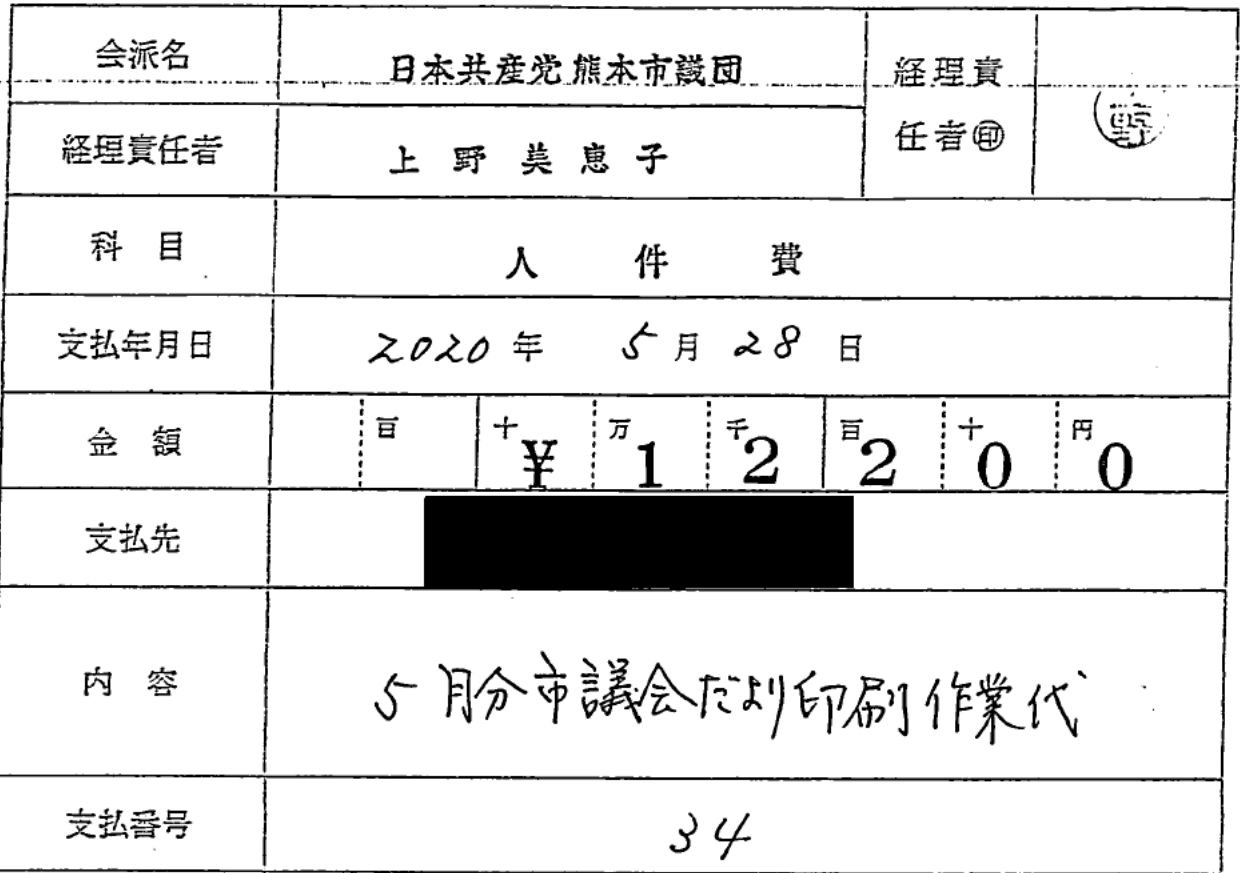 会派名 日本共産党熊本市議団 経理責任者㊞
経理責任者 上野美恵子
科目 人件費
支払年月日 2020年 5月 28日
金額 百 十 万 千 百 十 円
¥12200
支払先
内容 5月分市議会だより印刷作業代
支払番号 34